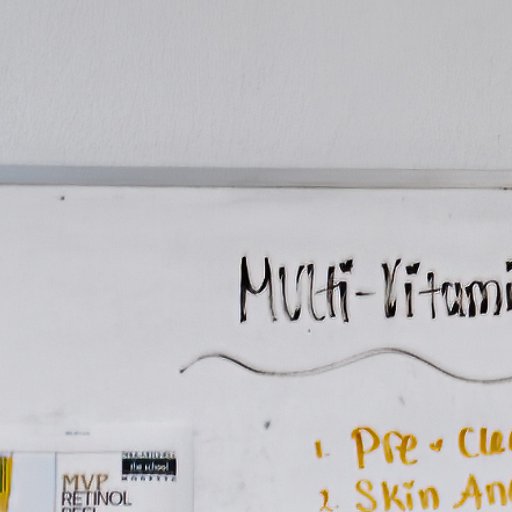 Multi-Vitami
1. Pre - Clea
2. Skin Ana
the school
MVP
RETINOL
PEEL